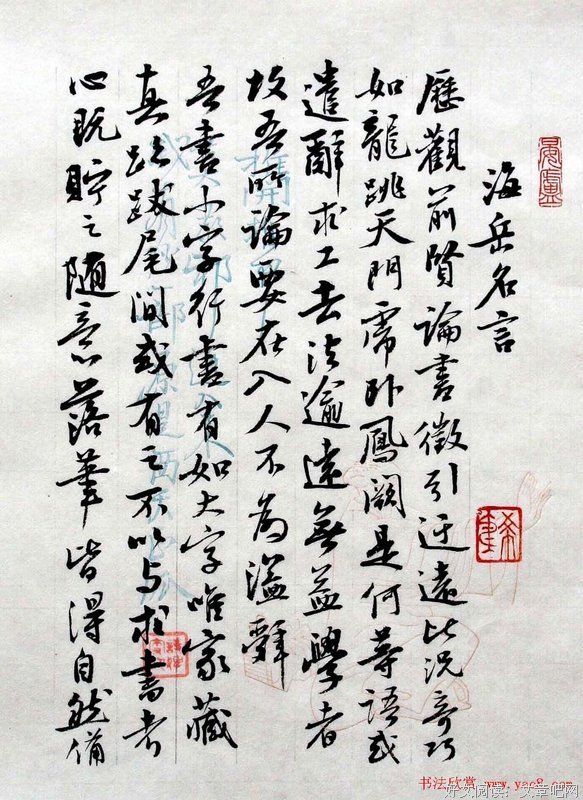 海岳名言
歷觀前賢論書徵引迂遠比況奇巧
如龍跳天門虎卧鳳闕是何等語或
遣辭求工去法逾遠無益學者
故吾所論要在入人不為溢辭
吾書小字行書有如大字唯家藏
真跡跋尾間或有之不以与求書者
心既貯之随意落筆皆得自然備
书法欣赏 www.yac8.com
好文阅读：文章吧网